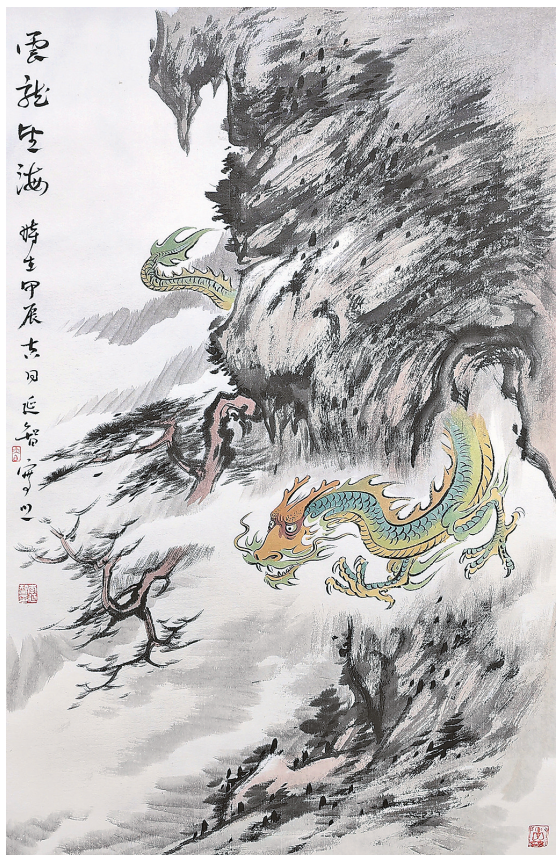 雲龍海
時在甲辰吉日延智寫之